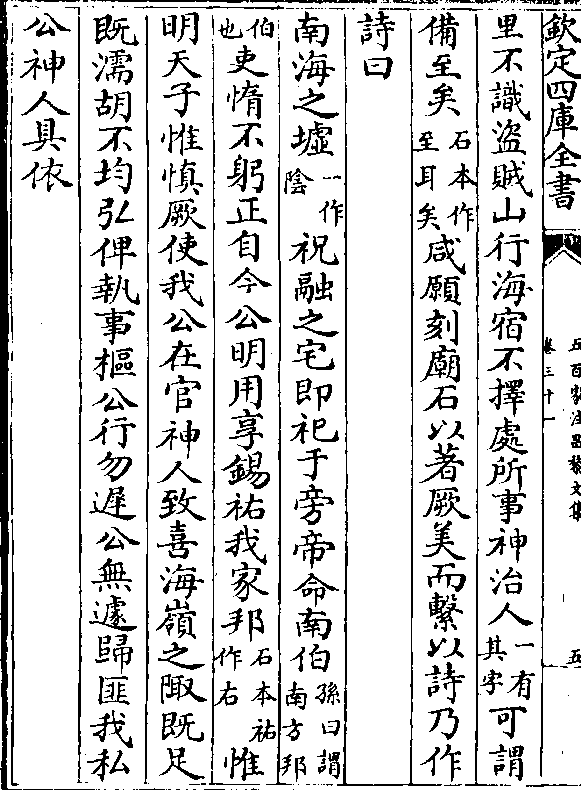 欽定四庫全書
五百家注昌黎文集
卷三十一
五
里不識盜賊山行海宿不擇處所事神治人一有其字可謂
備至矣石本作至耳矣咸願刻廟石以著厥美而繫以詩乃作
詩曰
南海之墟一作陰祝融之宅即祀于旁帝命南伯孫曰謂南方邦
伯也吏惰不躬正自今公明用享錫祐我家邦石本祐作右惟
明天子惟慎厥使我公在官神人致喜海嶺之陬既足
既濡胡不均弘俾執事樞公行勿遲公無遽歸匪我私
公神人具依